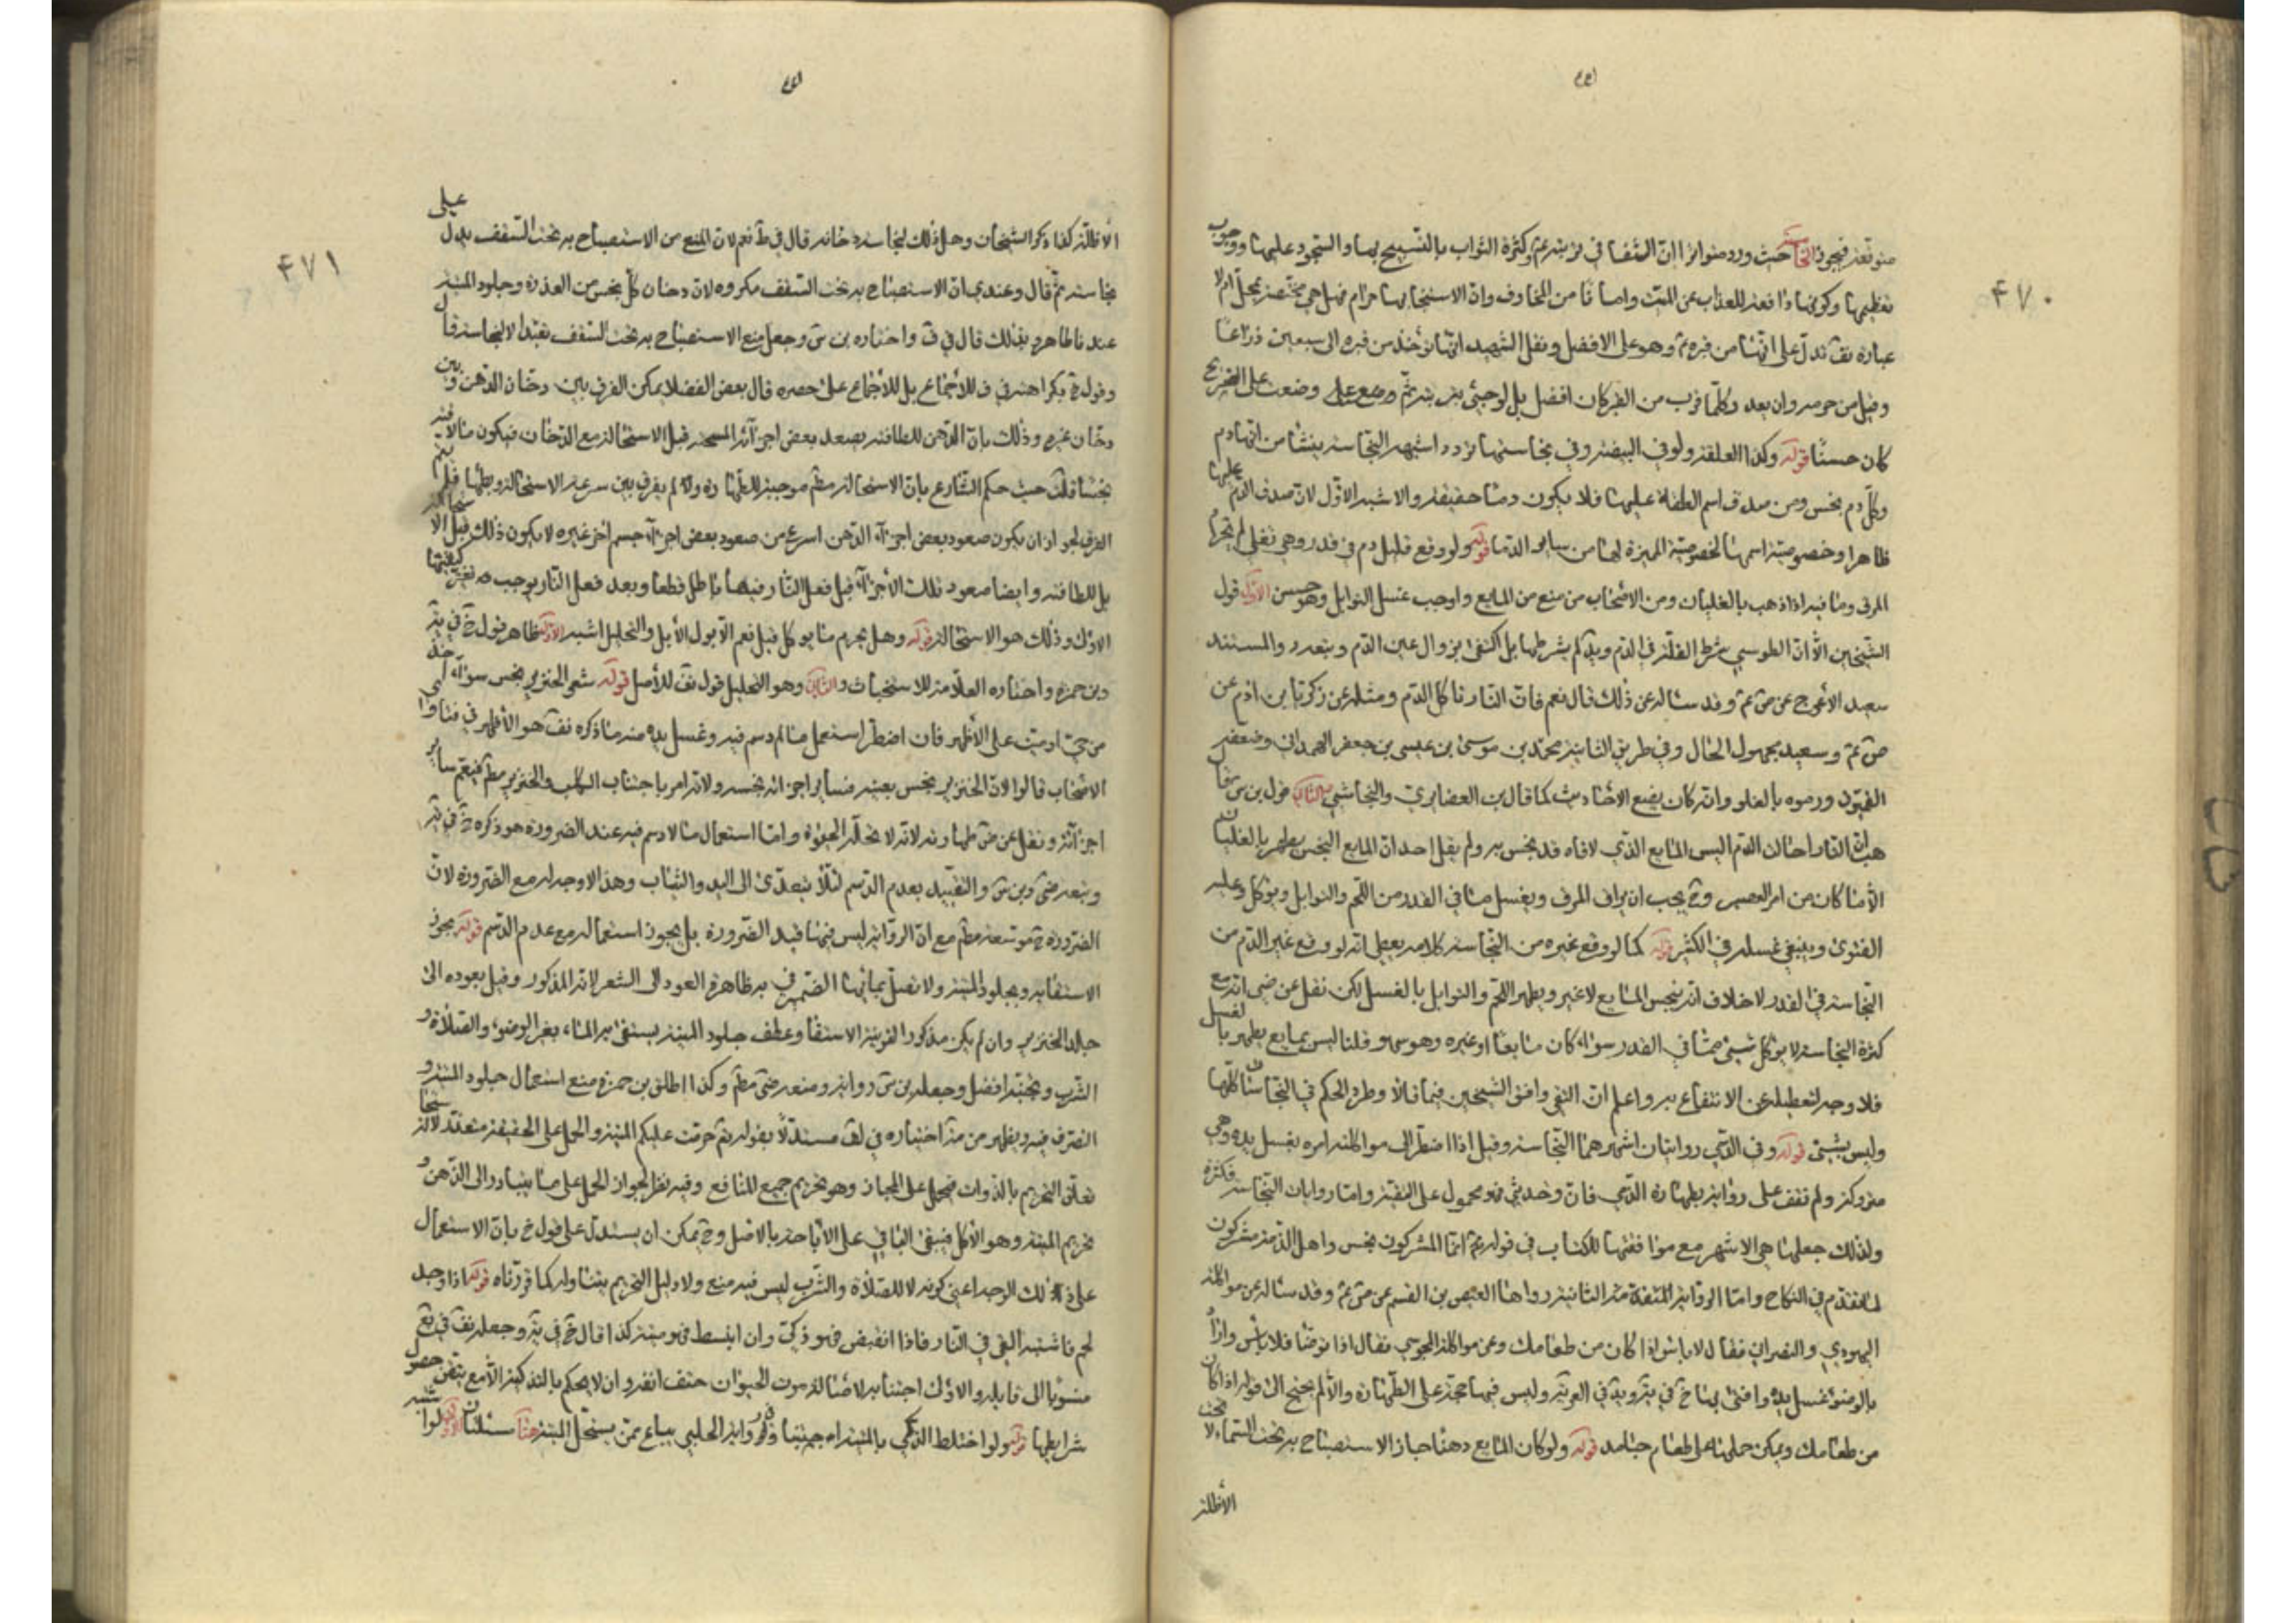 متوقفة فيجوز الخامسة حيث ورد متواترا ان الشفا في تربته عم وكثرة الثواب بالتسبيح بها والسجود عليها ووجوب
تعظيمها وكونها دافعة للعذاب عن الميت وامانا من المخاوف وان الاستنجا بها حرام فهل هي مختصة بمحل ام لا
عبارة تدل على انها من قبره عم وهو على الافضل ونقل الشهيد انها تؤخذ من قبره الى سبعين ذراعا
وقيل من حرمه وان بعد وكلما قرب من القبر كان افضل بل لو جيئ بتربة ثم وضعت على الضريح
كان حسنا قوله وكذا العلقة ولو في البيضة وفي نجاستها تردد اشبهه النجاسة ينشا من انها دم
وكل دم نجس ومن صدق اسم العلقة عليها فلا يكون دما حقيقة والاشبه الاول لان صدق الدم عليها
ظاهرا وخصوصية اسمها لخصوصية المميزة لها من ساير الدما قوله ولو وقع قليل دم في قدر وهي تغلى لم يحرم
المرق وما فيه اذا ذهب بالغليان ومن الاصحاب من منع من المايع واوجب غسل التوابل وهو حسن الاول قول
الشيخين الا ان الطوسي شرط القلة في الدم ويه لم يشرطها بل اكتفى بزوال عين الدم والمستند
سعيد الاعرج عن ص عم وقد ساله عن ذلك قال نعم فان النار تاكل الدم ومثله عن زكريا بن ادم عن
ص عم وسعيد مجهول الحال وفي طريق الثانية محمد بن موسى بن عيسى بن جعفر الهمداني وضعفه
القميون ورموه بالغلو وانه كان يضع الاحاديث كما قال بن الغضايري والنجاشي والثاني قول بن س
هب ان النار احالت الدم اليس المايع الذي لاقاه قد نجس به ولم يقل احد ان المايع النجس يطهر بالغليان
الا ما كان من امر العصير وح يجب ان يراق المرق ويغسل ما في القدر من اللحم والتوابل ويؤكل وعليه
الفتوى وينبغي غسله في الكثير قوله كما لو وقع غيره من النجاسة كلامه يعطى انه لو وقع غير الدم من
النجاسة في القدر لا خلاف انه ينجس المايع لا غير ويطهر اللحم والتوابل بالغسل لكن نقل عن ضى انه مع
كثرة النجاسة لا يؤكل شيئ مما في القدر سواء كان مايعا او غيره وهو سهو وقلنا ليس بمايع يطهر بالغسل
فلا وجه لتعطيله عن الانتفاع به واعلم ان التقي وافق الشيخين فيما قالا وطرد الحكم في النجاسات كلها
وليس بشيئ قوله وفي الذمي روايتان اشهرهما النجاسة وقيل اذا اضطر الى مواكلته امره بغسل يده وهي
متروكة ولم نقف على رواية بطهارة الذمي فان وجد شيئ فهو محمول على التقية واما روايات النجاسة فكثيرة
ولذلك جعلها هي الاشهر مع موافقتها للكتاب في قوله تع انما المشركون نجس واهل الذمة مشركون
لما تقدم في النكاح واما الرواية المتقدمة الثانية رواها العيص بن القسم عن ص عم وقد ساله عن مواكلة
اليهودي والنصراني فقال لا باس اذا كان من طعامك وعن مواكلة المجوسي فقال اذا توضا فلا باس واراد
بالوضوء غسل يده وافتى بها خ في ية ويد في العويز وليس فيها حجة على الطهارة والا لم يحتج الى قوله اذا كان
من طعامك ويمكن حملها على طعام جامد قوله ولو كان المايع دهنا جاز الاستصباح به تحت السماء لا تحت
الاظلة
الاظلة كذا ذكر الشيخان وهل ذلك لنجاسة دخانه قال في ط نعم لان المنع من الاستصباح به تحت السقف يدل على
نجاسته ثم قال وعندي ان الاستصباح به تحت السقف مكروه لان دخان كل نجس من العذرة وجلود الميتة
عندنا طاهر وبذلك قال في ف واختاره بن س وجعل منع الاستصباح به تحت السقف تعبدا لا لنجاسة قال
وقول خ بكراهته في ف للاجماع بل للاجماع على حصره قال بعض الفضلا يمكن الفرق بين دخان الدهن وبين
دخان غيره وذلك بان الدهن للطافته يصعد بعض اجزائه المسخنة قبل الاستحالة مع الدخان فيكون ما لاقيه
نجسا قلت حيث حكم الشارع بان الاستحالة مط موجبة للطهارة ولم يفرق بين سرعة الاستحالة وبطئها فلم يتم
الفرق لجواز ان يكون صعود بعض اجزاء الدهن اسرع من صعود بعض اجزاء جسم اخر غيره لا بكون ذلك قبل الاستحالة
بل للطافته وايضا صعود تلك الاجزاء قبل فعل النار فيها باطل قطعا وبعد فعل النار يوجب تغير كيفيتها
الاول وذلك هو الاستحالة قوله وهل يحرم ما يوكل قيل نعم الا بول الابل والتحليل اشبه الاول ظاهر قول خ في ية
وبن حمزة واختاره العلامة للاستخباث والثاني وهو التحليل قول للاصل قوله شعر الخنزير نجس سواء اخذ
من حي او ميت على الاظهر فان اضطر استعمل ما لا دسم فيه وغسل يده منه ما ذكره هو الاظهر في فتاوى
الاصحاب قالوا لان الخنزير نجس بعينه فساير اجزائه نجسة ولانه امر باجتناب الكلب والخنزير مط فيعم ساير
اجزائه ونقل عن ض طهارته لانه لا تحله الحيوة واما استعمال ما لا دسم فيه عند الضرورة هو ذكره خ في ية
وتبعه ضى وبن س والتقييد بعدم الدسم لئلا يتعدى الى اليد والثياب وهذا لا وجه له مع الضرورة لان
الضرورة ح موسعة مط مع ان الرواية ليس فيها قيد الضرورة بل يجوز استعماله مع عدم الدسم قوله يجوز
الاستقاء بجلود الميتة ولا تصل بمائها الضمير في به ظاهره العود الى الشعر لانه المذكور وقيل بعوده الى
جلد الخنزير وان لم يكن مذكورا لقرينة الاستقا وعطف جلود الميتة يستقى به الماء، بغير الوضوء، والصلاة و
الشرب وتجنبه افضل وجعله بن س رواية ومنعه ضى مط وكذا اطلق بن حمزة منع استعمال جلود الميتة و
التصرف فيه ويظهر من اختياره في لف مستدلا بقوله تع حرمت عليكم الميتة والحمل على الحقيقة متعذر لاستحالة
تعلق التحريم بالذوات فيحمل على المجاز وهو تحريم جميع المنافع وفيه نظر لجواز الحمل على ما يتبادر الى الذهن و
تحريم الميتة وهو الاكل فيبقى الباقي على الاباحة بالاصل وح يمكن ان يستدل على قول خ بان الاستعمال
على ذلك الوجه اعني كونه لا للصلاة والشرب ليس فيه منع ولا دليل التحريم يتناوله كما قررناه قوله اذا وجد
لحم فاشتبه القي في النار فاذا انقبض فهو ذكي وان انبسط فهو ميتة كذا قال خ في ية وجعله في يع
منسوبا الى قايله والاولى اجتنابه لاصالة موت الحيوان حتف انفه وان لا يحكم بالتذكية الا مع يقين حصول
شرايطها قوله ولو اختلط الذكي بالميتة اجتنبا وفي رواية الحلبي يباع ممن يستحل الميتة هنا مسئلتان الاولى لو اشتبه
٤٧٠
٤٧١